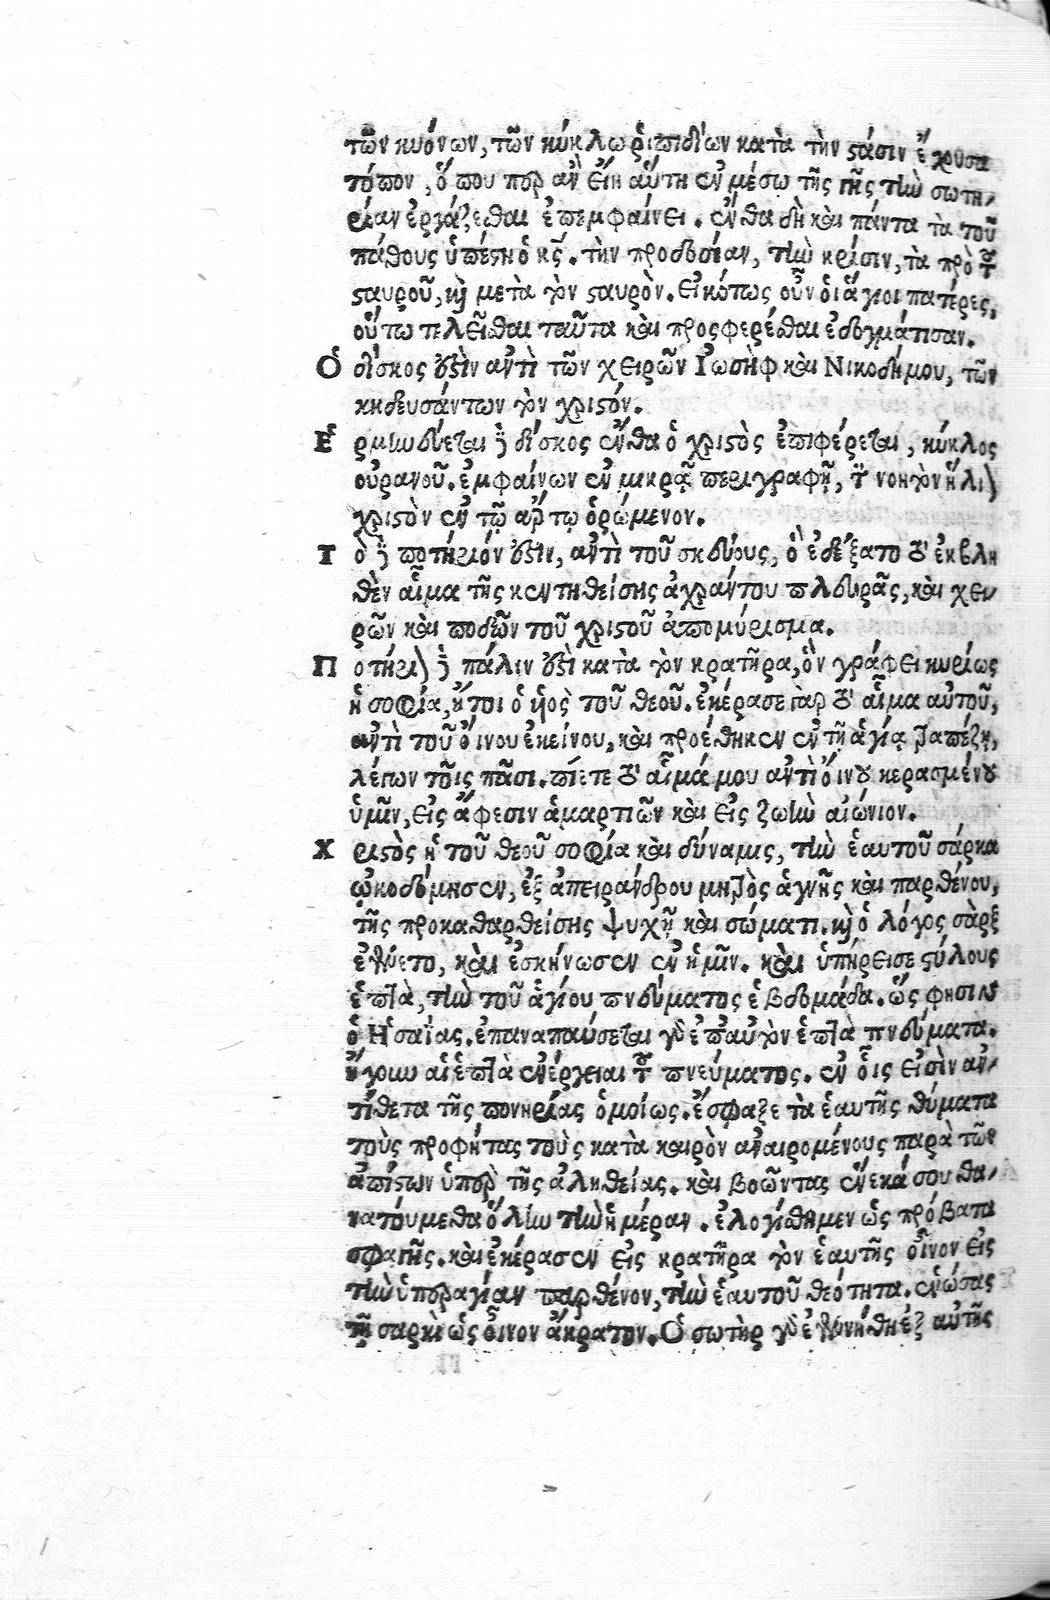 τῶν κιόνων, τῶν κύκλω ῥιπιδίων κατὰ τὴν στάσιν ἔχουσα
τόπον, ὅπου περ ἂν εἴη αὕτη ἐν μέσω τῆς γῆς τὴν σωτη-
ρίαν ἐργάζεσθαι ἐπεμφαίνει. ἔνθα δὴ καὶ πάντα τὰ τοῦ
πάθους ὑπέστη ὁ κς. τὴν προδοσίαν, τὴν κρίσιν, τὰ πρὸ τοῦ
σταυροῦ, καὶ μετὰ τὸν σταυρὸν. εἰκότως οὖν οἱ ἅγιοι πατέρες,
οὕτω τελεῖσθαι ταῦτα καὶ προσφερέσθαι ἐδογμάτισαν.
Ὁ δίσκος ἐστὶν ἀντὶ τῶν χειρῶν Ἰωσὴφ καὶ Νικοδήμου, τῶν
κηδευσάντων τὸν χριστόν.
Ἑρμηνεύεται δὲ δίσκος ἔνθα ὁ χριστὸς ἐπιφέρεται, κύκλος
οὐρανοῦ. ἐμφαίνων ἐν μικρᾷ περιγραφῇ, τὸν νοητὸν ἥλιον
χριστὸν ἐν τῷ ἄρτῳ ὁρώμενον.
Τὸ δὲ ποτήριόν ἐστιν, ἀντὶ τοῦ σκεύους, ὃ ἐδέξατο τὸ ἐκβλη
θὲν αἷμα τῆς κεντηθείσης ἀχράντου πλευρᾶς, καὶ χει-
ρῶν καὶ ποδῶν τοῦ χριστοῦ ἀπομύρισμα.
Ποτήριον δὲ πάλιν ἐστὶ κατὰ τὸν κρατῆρα, ὃν γράφει κυρίως
ἡ σοφία, ἤτοι ὁ υἱὸς τοῦ θεοῦ. ἐκέρασε γὰρ τὸ αἷμα αὐτοῦ,
ἀντὶ τοῦ οἴνου ἐκείνου, καὶ προέθηκεν ἐν τῇ ἁγίᾳ τραπέζῃ,
λέγων τοῖς πᾶσι. πίετε τὸ αἷμά μου ἀντὶ οἴνου κερασμένου
ὑμῖν, εἰς ἄφεσιν ἁμαρτιῶν καὶ εἰς ζωὴν αἰώνιον.
Χριστὸς ἡ τοῦ θεοῦ σοφία καὶ δύναμις, τὴν ἑαυτοῦ σάρκα
ᾠκοδόμησεν, ἐξ ἀπειράνδρου μητρὸς ἁγνῆς καὶ παρθένου,
τῆς προκαθαρθείσης ψυχῇ καὶ σώματι. καὶ ὁ λόγος σὰρξ
ἐγένετο, καὶ ἐσκήνωσεν ἐν ἡμῖν. καὶ ὑπήρεισε στύλους
ἑπτὰ, τὴν τοῦ ἁγίου πνεύματος ἑβδομάδα. ὥς φησιν
ὁ Ἠσαΐας. ἐπαναπαύσεται γὰρ ἐπ' αὐτὸν ἑπτὰ πνεύματα.
ἤγουν αἱ ἑπτὰ ἐνέργειαι τοῦ πνεύματος. ἐν οἷς εἰσὶν ἀν-
τίθετα τῆς πονηρίας ὁμοίως. ἔσφαξε τὰ ἑαυτῆς θύματα
τοὺς προφήτας τοὺς κατὰ καιρὸν ἀναιρομένους παρὰ τῶν
ἀπίστων ὑπὲρ τῆς ἀληθείας. καὶ βοῶντας ἕνεκά σου θα-
νατούμεθα ὅλην τὴν ἡμέραν. ἐλογίσθημεν ὡς πρόβατα
σφαγῆς. καὶ ἐκέρασεν εἰς κρατῆρα τὸν ἑαυτῆς οἶνον εἰς
τὴν ὑπεραγίαν παρθένον, τὴν ἑαυτοῦ θεότητα. ἑνώσας
τῇ σαρκὶ ὡς οἶνον ἄκρατον. Ὁ σωτὴρ γὰρ ἐγεννήθη ἐξ αὐτῆς